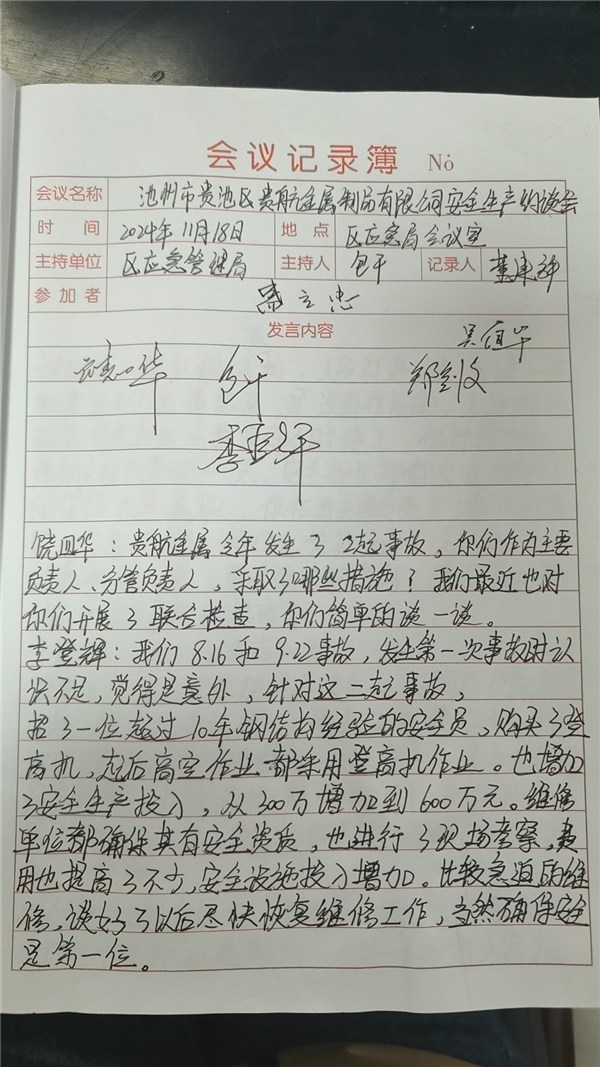 会议记录簿 No
会议名称 池州市贵池区贵航金属制品有限公司安全生产约谈会
时 间 2024年11月18日 地 点 区应急局会议室
主持单位 区应急管理局 主持人 包干 记录人
参加者
发言内容
包干
饶四华：贵航金属今年发生了2起事故，你们作为主要
负责人、分管负责人，采取了哪些措施？我们最近也对
你们开展了联合检查，你们简单的谈一谈。
李登辉：我们8.16和9.22事故，发生第一次事故时认
识不足，觉得是意外，针对这二起事故，
招了一位超过10年钢结构经验的安全员，购买了登
高机，后高空作业都采用登高机作业。也增加
了安全生产投入，从300万增加到600万元。维修
单位都确保其有安全资质，也进行了现场考察，费
用也提高了不少，安全设施投入增加。比较急迫的维
修，谈好了以后尽快恢复维修工作，当然确保安全
是第一位。